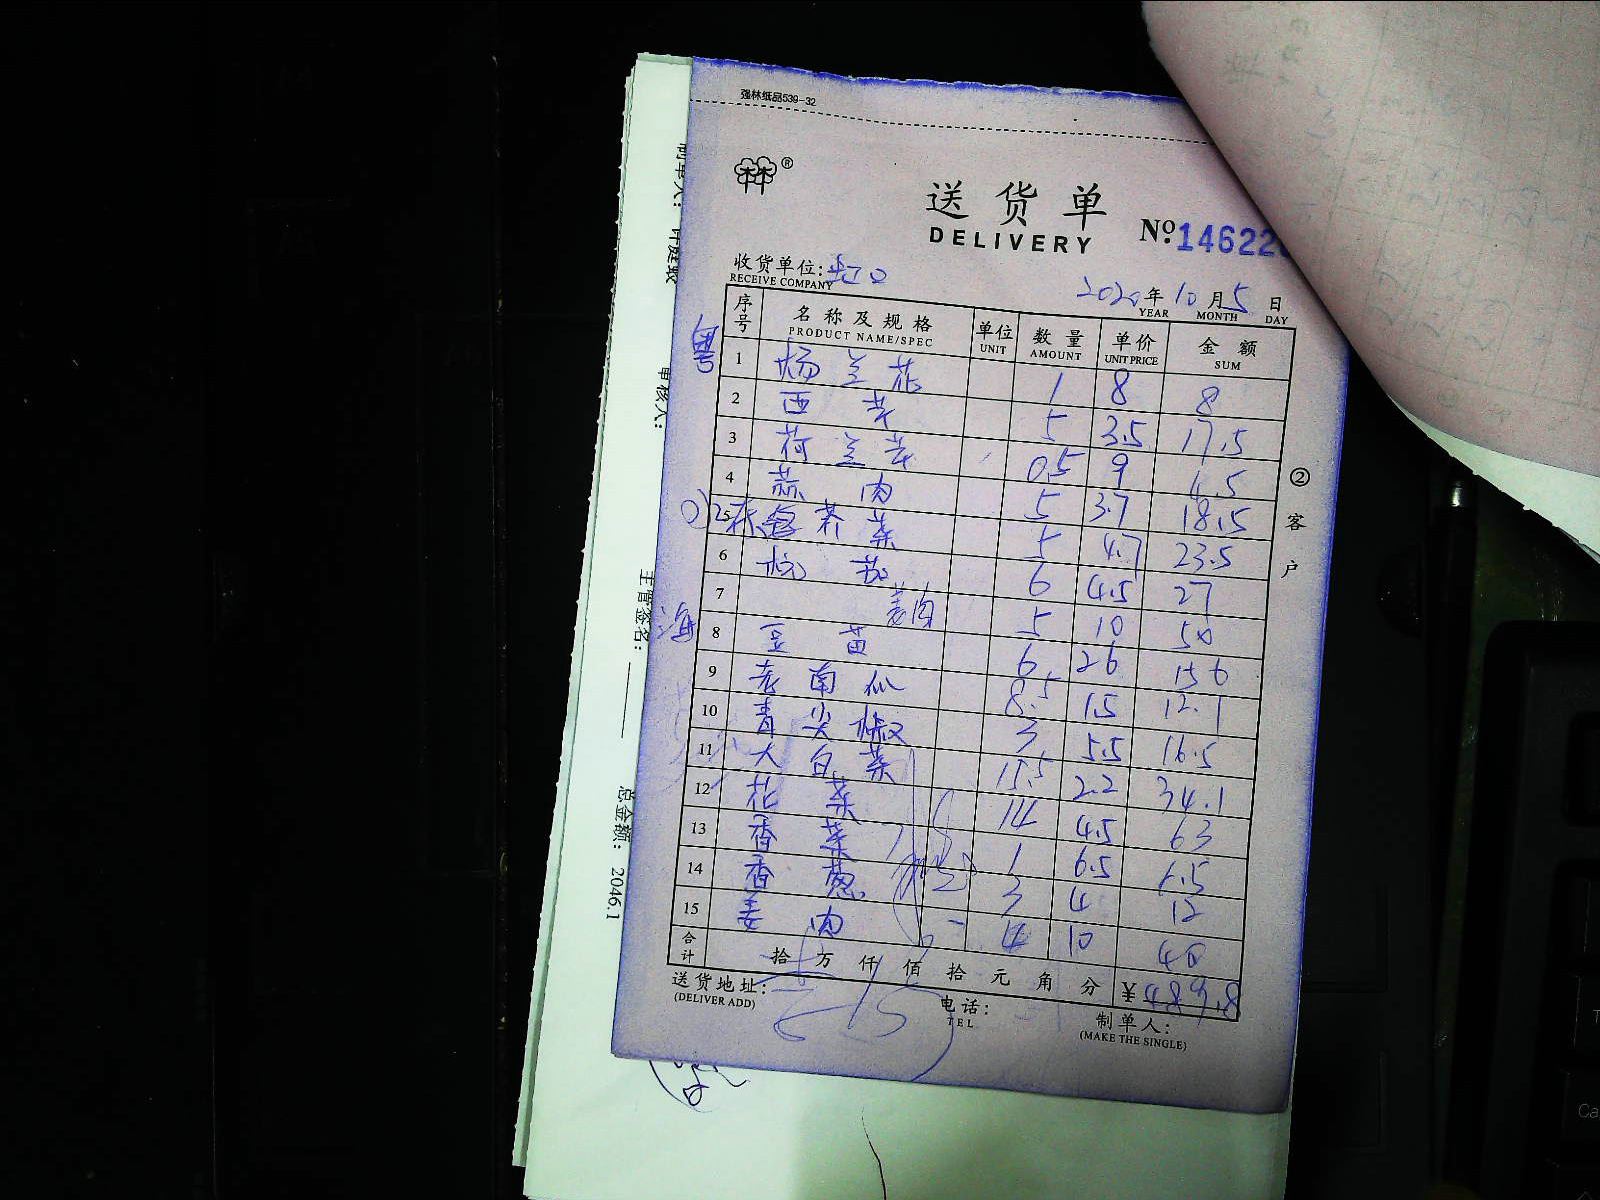 强林纸品539-32
®
送货单
DELIVERY
Nº:14622
收货单位:虹口
RECEIVE COMPANY
2020年10月5日
YEAR MONTH DAY
序号 名称及规格 单位 数量 单价 金额
PRODUCT NAME/SPEC UNIT AMOUNT UNIT PRICE SUM
粤
1 杨兰花 1 8 8
2 西芹 5 3.5 17.5
3 荷兰芹 0.5 9 4.5
4 蒜肉 5 3.7 18.5
5 菜 5 4.7 23.5
6 杭茄 6 4.5 27
7 姜肉 5 10 50
海
8 豆苗 6 26 156
9 老南瓜 8.5 1.5 12.1
10 青尖椒 3 5.5 16.5
11 大白菜 15.5 2.2 34.1
12 花菜 14 4.5 63
13 香菜 1 6.5 6.5
14 香葱 3 4 12
15 姜肉 4 10 40
合计 拾万仟佰拾元角分 ¥489.8
送货地址:
(DELIVER ADD)
电话:
TEL
制单人:
(MAKE THE SINGLE)
②客户
制单人:
审核人:
主管签名:
总金额: 2046.1